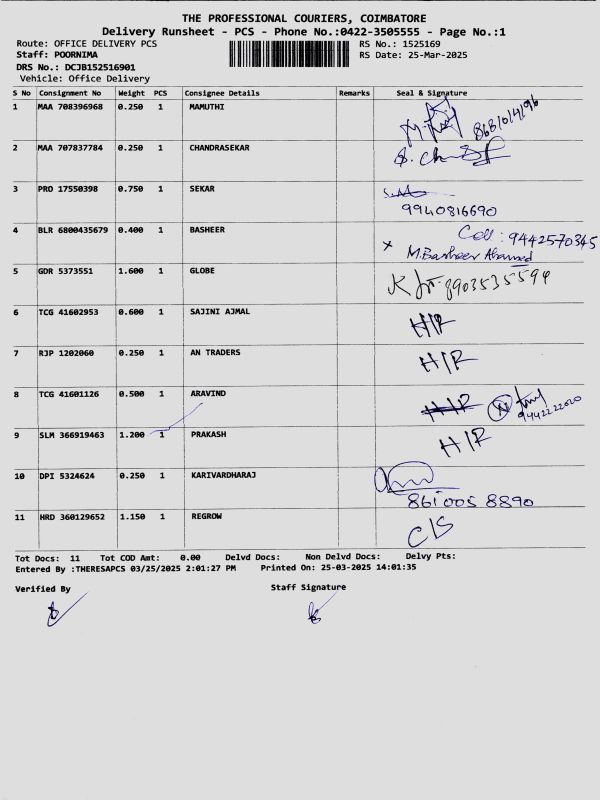 THE PROFESSIONAL COURIERS, COIMBATORE
Delivery Runsheet - PCS - Phone No.:0422-3505555 - Page No.:1
Route: OFFICE DELIVERY PCS RS No.: 1525169
Staff: POORNIMA RS Date: 25-Mar-2025
DRS No.: DCJB152516901
Vehicle: Office Delivery
S No Consignment No Weight PCS Consignee Details Remarks Seal & Signature
1 MAA 708396968 0.250 1 MAMUTHI
2 MAA 707837784 0.250 1 CHANDRASEKAR
3 PRD 17550398 0.750 1 SEKAR
9940816690
4 BLR 6800435679 0.400 1 BASHEER Cell: 9442570345
x M.Basheer Ahamed
5 GDR 5373551 1.600 1 GLOBE 8903535594
6 TCG 41602953 0.600 1 SAJINI AJMAL H/R
7 RJP 1202060 0.250 1 AN TRADERS H/R
8 TCG 41601126 0.500 1 ARAVIND H/R N
9 SLM 366919463 1.200 1 PRAKASH H/R
10 DPI 5324624 0.250 1 KARIVARDHARAJ
8610058890
11 HRD 360129652 1.150 1 REGROW C/S
Tot Docs: 11 Tot COD Amt: 0.00 Delvd Docs: Non Delvd Docs: Delvy Pts:
Entered By :THERESAPCS 03/25/2025 2:01:27 PM Printed On: 25-03-2025 14:01:35
Verified By Staff Signature